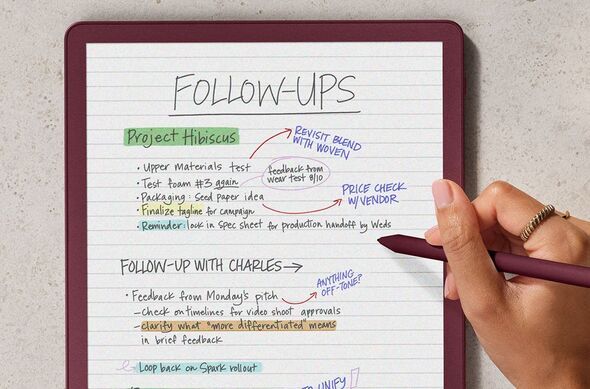 FOLLOW-UPS
Project Hibiscus
REVISIT BLEND
WITH WOVEN
• Upper Materials test
• Test foam #3 again
feedback from
wear test 8/10
• Packaging: Seed paper idea
PRICE CHECK
W/VENDOR
• Finalize tagline for campaign
• Reminder: lock in spec sheet for production handoff by Weds
FOLLOW-UP WITH CHARLES→
ANYTHING
OFF-TONE?
• Feedback from Monday's pitch
– Check on timelines for video shoot approvals
– clarify what "more differentiated" means
in brief feedback
Loop back on Spark rollout
TO UNIFY